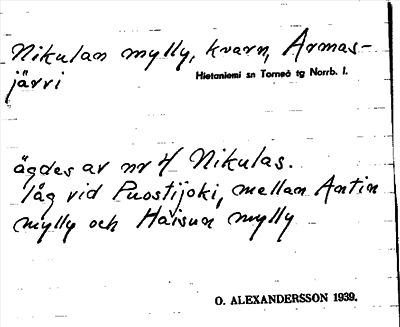 Nikulan mylly, kvarn, Armas-
järvi
Hietaniemi sn Torneå tg Norrb. l.
ägdes av nr 4 Nikulas.
låg vid Puostijoki, mellan Antin
mylly och Haisun mylly
O. ALEXANDERSSON 1939.